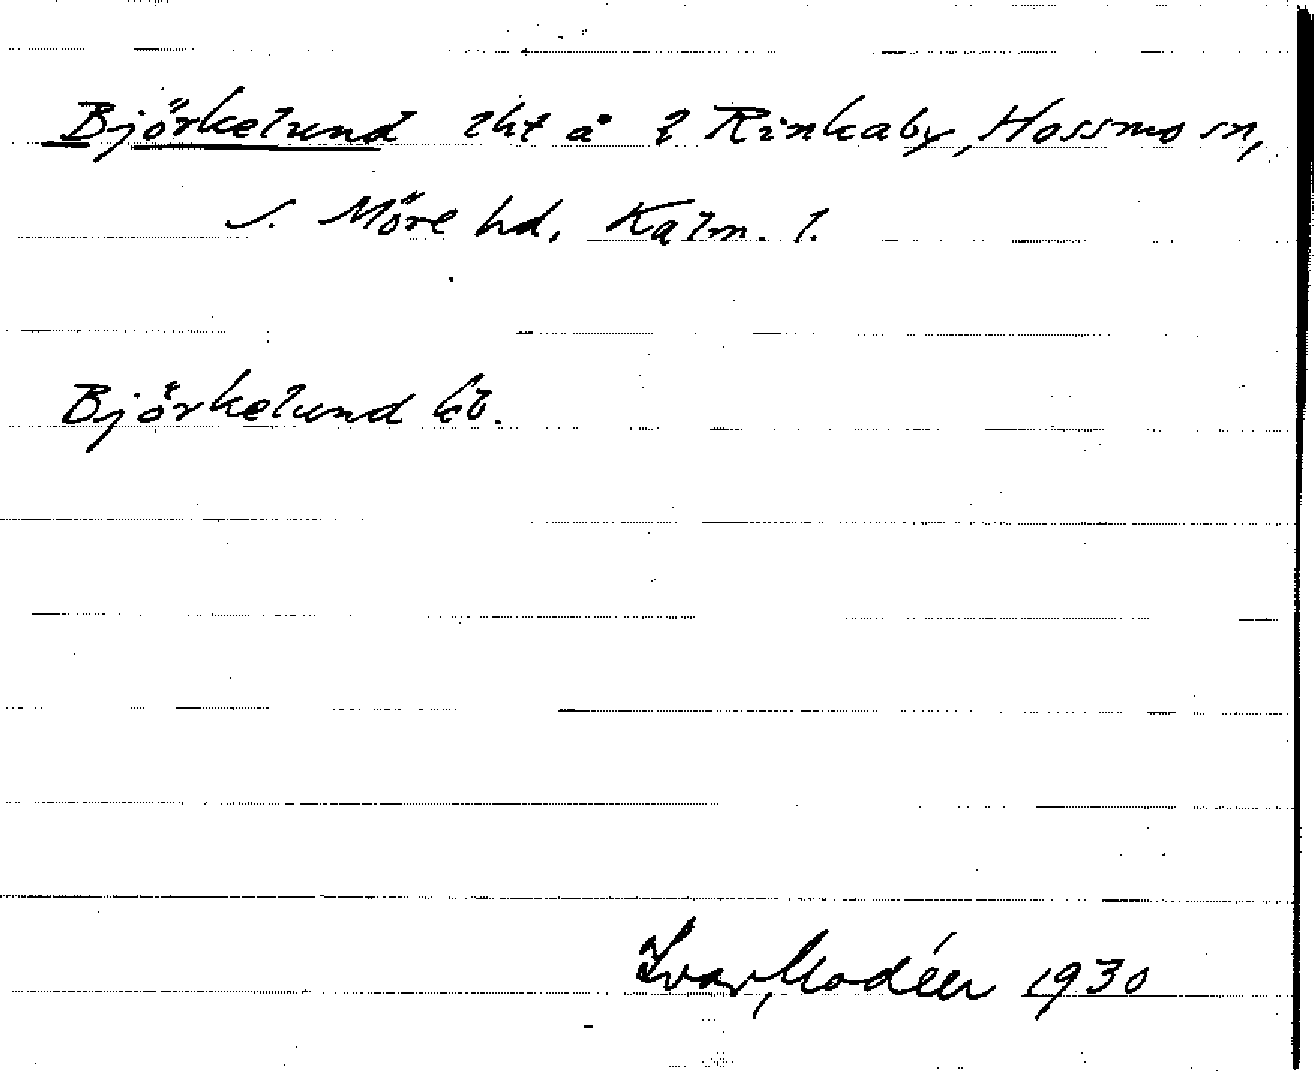 Björkelund lht å l Rinkaby, Hossmo sn,
S. Möre hd, Kalm. l.
Björkelund kb.
Ivar Modéer 1930